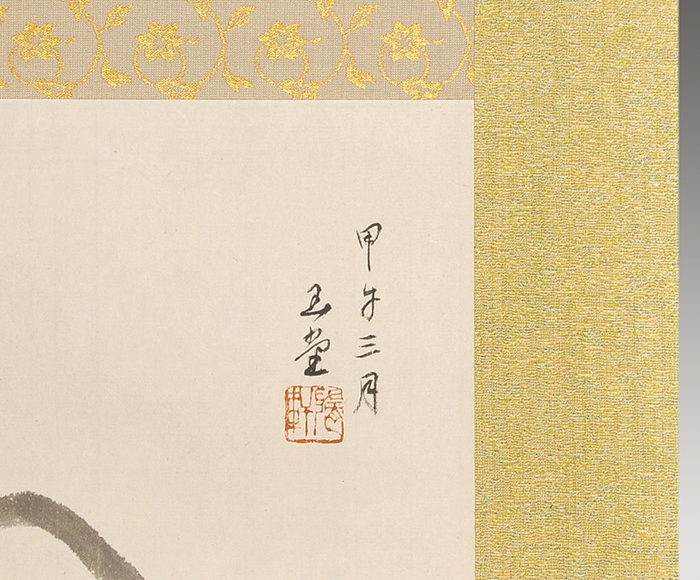 甲午三月
玉堂